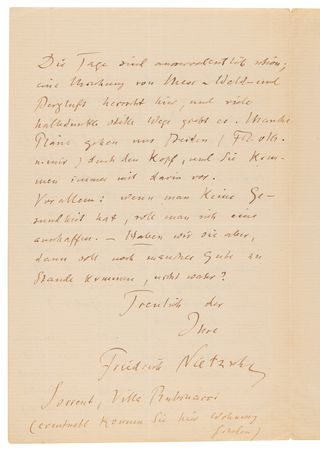 Die Tage sind ausserordentlich schön;
eine Mischung von Meer- Wald- und
Bergluft herrscht hier, und viele
halbdunkle stille Wege giebt es. Manche
Pläne gehen uns Beiden (Fr. Roth.
u. mir) durch den Kopf, und Sie kom-
men immer mit darin vor.
Vor allem: wenn man keine Ge-
sundheit hat, soll man sich eine
anschaffen. — Haben wir sie aber,
dann soll noch mancher Gute zu
Stande kommen, nicht wahr?
Treulich der
Ihre
Friedrich Nietzsche
Sorrent, Villa Rubinacci
(eventuell können Sie hier Wohnung
finden)